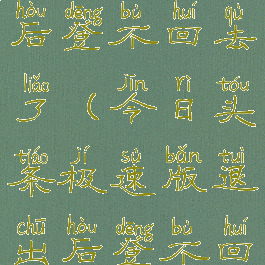 hòu dēng bú huí qù
后登不回去
liǎo jīn rì tóu
了（今日头
tiáo jí sù bǎn tuì
条极速版退
chū hòu dēng bú huí
出后登不回